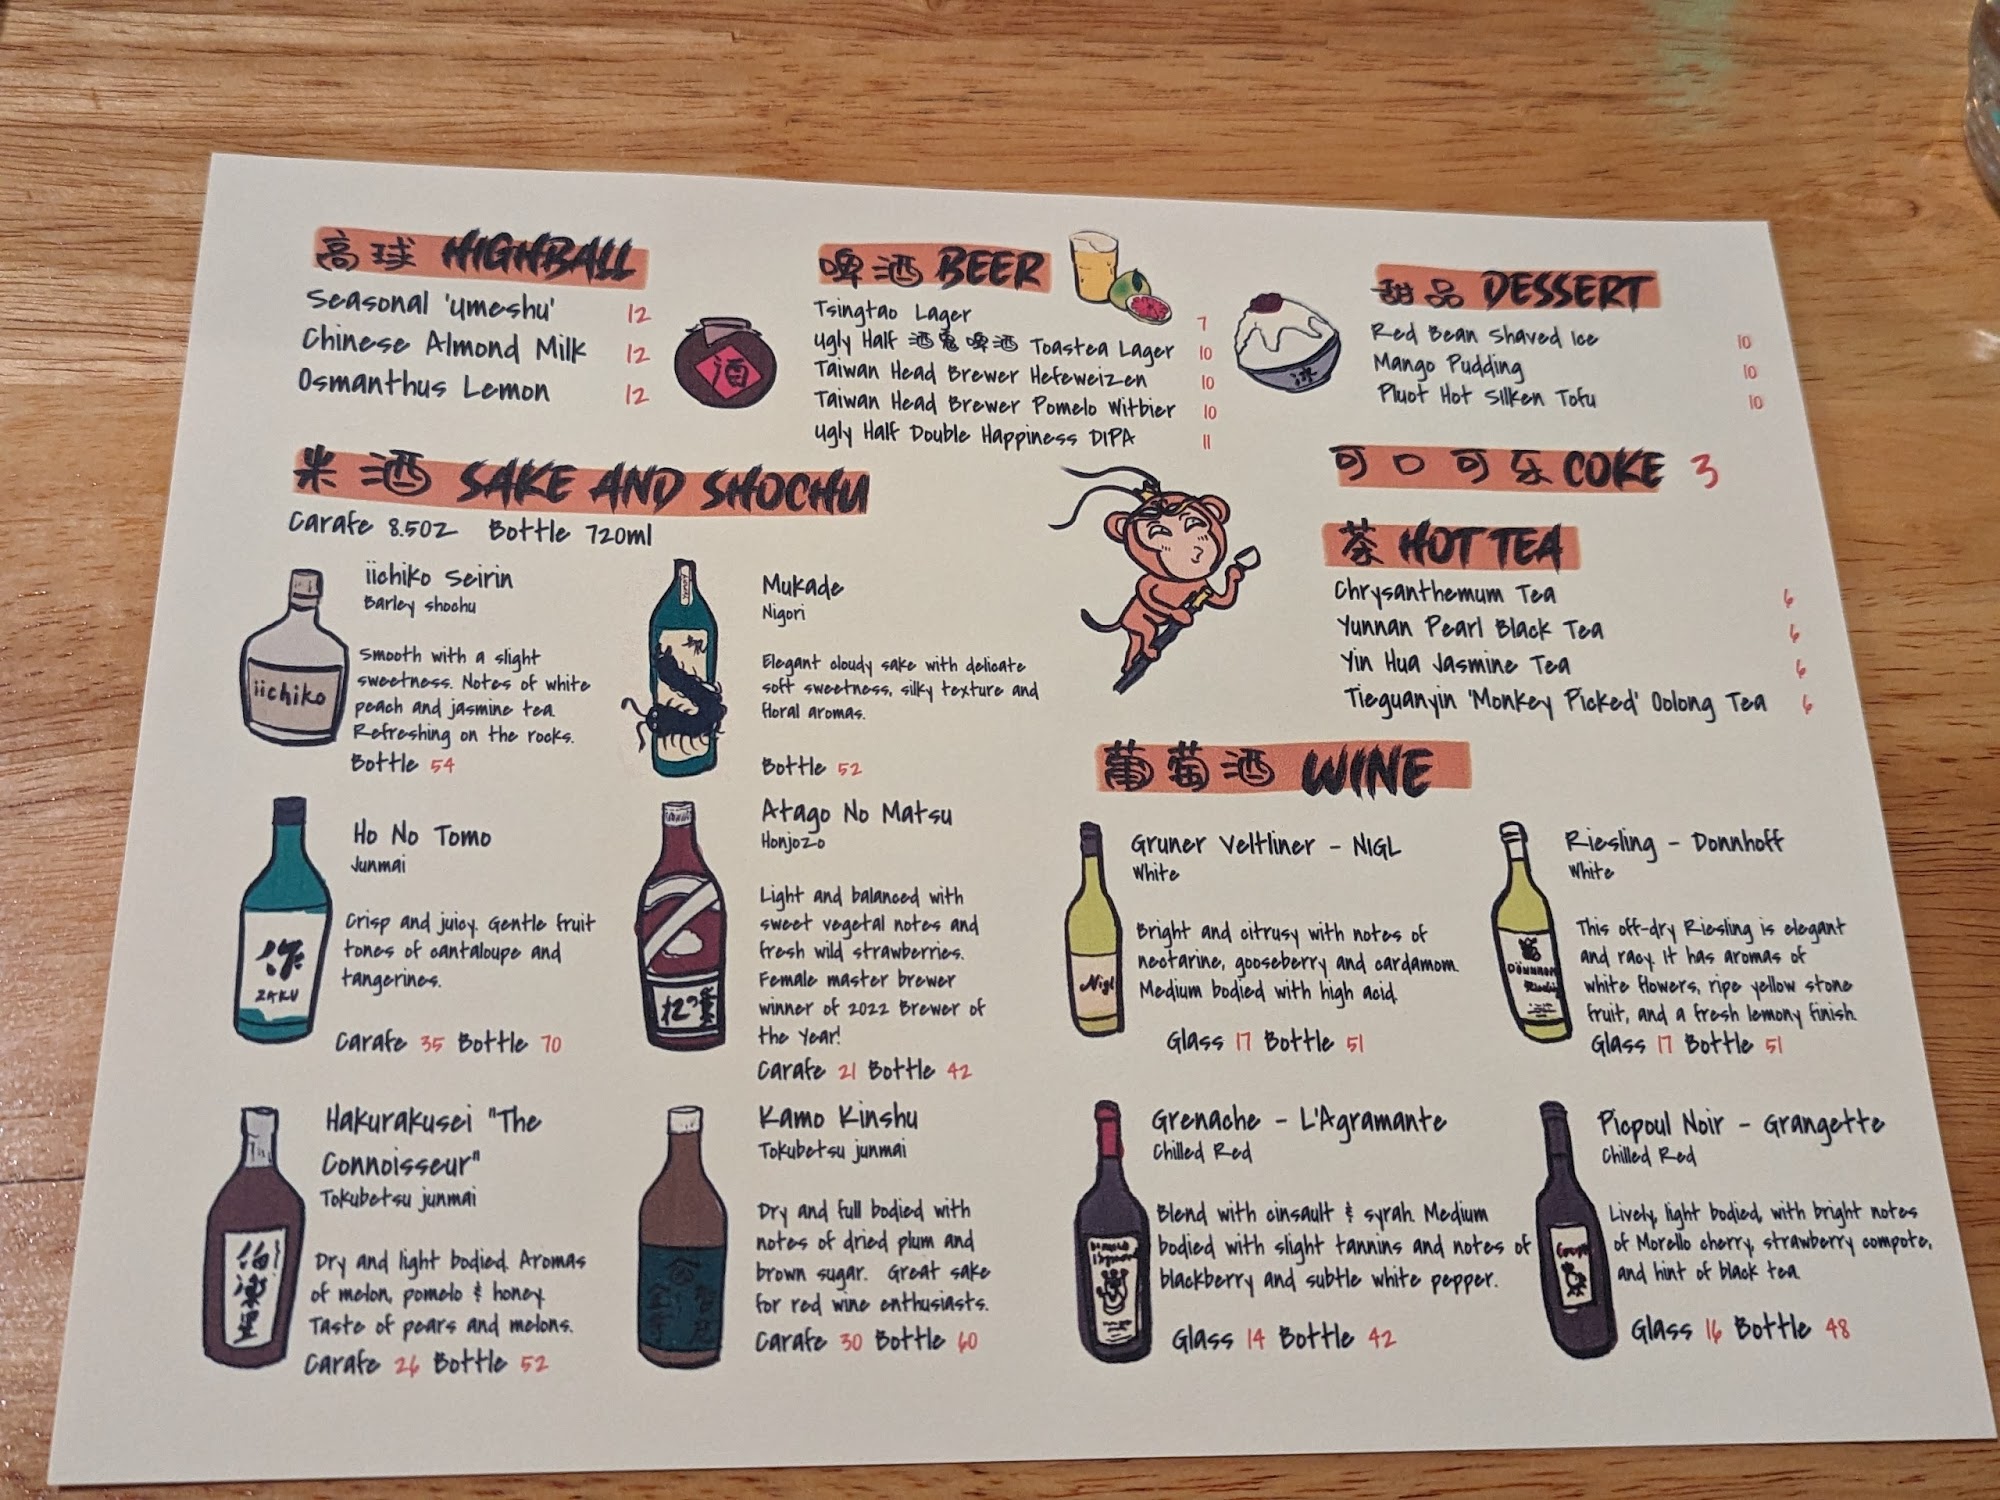 高球 HIGHBALL
Seasonal 'Umeshu' 12
Chinese Almond Milk 12
Osmanthus Lemon 12
酒
啤酒 BEER
Tsingtao Lager 7
Ugly Half 酒鬼啤酒 Toastea Lager 10
Taiwan Head Brewer Hefeweizen 10
Taiwan Head Brewer Pomelo Witbier 10
Ugly Half Double Happiness DIPA 11
冰
甜品 DESSERT
Red Bean Shaved Ice 10
Mango Pudding 10
Pluot Hot Silken Tofu 10
可口可乐 COKE 3
茶 HOT TEA
Chrysanthemum Tea 6
Yunnan Pearl Black Tea 6
Yin Hua Jasmine Tea 6
Tieguanyin 'Monkey Picked' Oolong Tea 6
米酒 SAKE AND SHOCHU
Carafe 8.5oz Bottle 720ml
iichiko
iichiko Seirin
Barley shochu
Smooth with a slight
sweetness. Notes of white
peach and jasmine tea.
Refreshing on the rocks.
Bottle 54
Mukade
Nigori
Elegant cloudy sake with delicate
soft sweetness, silky texture and
floral aromas.
Bottle 52
作
ZAKU
Ho No Tomo
Junmai
Crisp and juicy. Gentle fruit
tones of cantaloupe and
tangerines.
Carafe 35 Bottle 70
Atago No Matsu
Honjozo
Light and balanced with
sweet vegetal notes and
fresh wild strawberries.
Female master brewer
winner of 2022 Brewer of
the Year!
Carafe 21 Bottle 42
伯楽星
Hakurakusei "The
Connoisseur"
Tokubetsu junmai
Dry and light bodied. Aromas
of melon, pomelo & honey.
Taste of pears and melons.
Carafe 26 Bottle 52
Kamo Kinshu
Tokubetsu junmai
Dry and full bodied with
notes of dried plum and
brown sugar. Great sake
for red wine enthusiasts.
Carafe 30 Bottle 60
葡萄酒 WINE
Nigl
Gruner Veltliner - NIGL
White
Bright and citrusy with notes of
nectarine, gooseberry and cardamom.
Medium bodied with high acid.
Glass 17 Bottle 51
Riesling - Donnhoff
White
This off-dry Riesling is elegant
and racy. It has aromas of
white flowers, ripe yellow stone
fruit, and a fresh lemony finish.
Glass 17 Bottle 51
Grenache - L'Agramante
Chilled Red
Blend with cinsault & syrah. Medium
bodied with slight tannins and notes of
blackberry and subtle white pepper.
Glass 14 Bottle 42
Picpoul Noir - Grangette
Chilled Red
Lively, light bodied, with bright notes
of Morello cherry, strawberry compote,
and hint of black tea.
Glass 16 Bottle 48